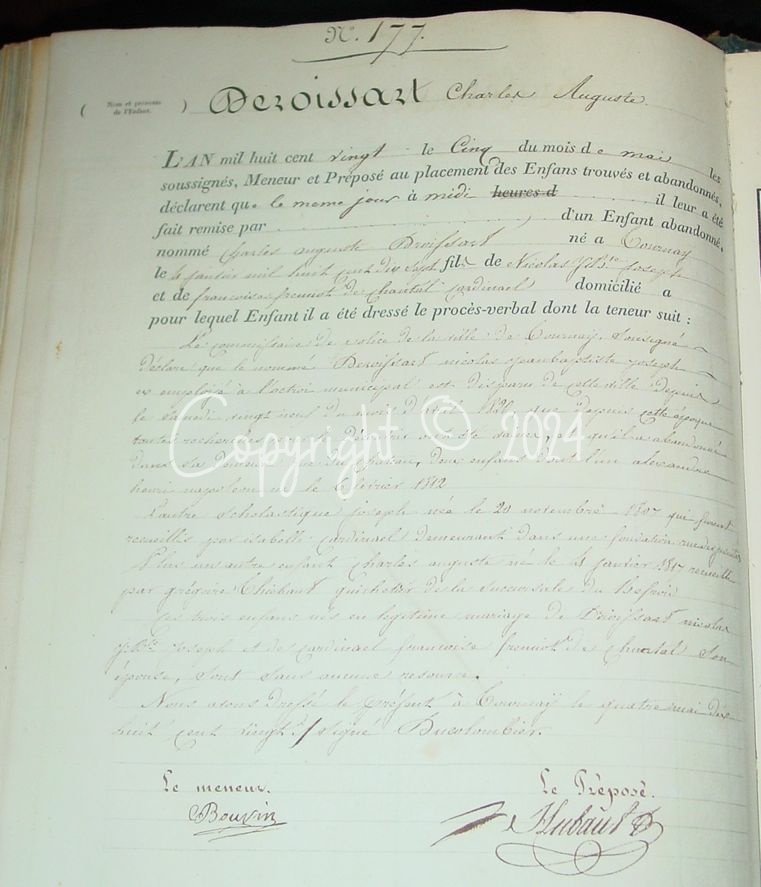 N°. 177.
( Nom et prénoms de l'Enfant. ) Deroissart Charles Auguste.
L'AN mil huit cent vingt le Cinq du mois de mai les
soussignés, Meneur et Préposé au placement des Enfans trouvés et abandonnés,
déclarent que le meme jour à midi heures d il leur a été
fait remise par , d'un Enfant abandonné.
nommé Charles auguste Deroissart né a Tournay
le janvier mil huit cent dix sept fils de Nicolas J Bte Joseph
et de francoise fremiot de chantal Cardinael domicilié a
pour lequel Enfant il a été dressé le procès-verbal dont la teneur suit :
Le commissaire de police de la ville de Tournay, Soussigné
déclare que le nommé Deroissart nicolas jeanbaptiste joseph
ex employé à l'octroi municipal est disparu de cette ville depuis
le Samedi vingt neuf du mois d'avril 1820 que depuis cette époque
toutes recherches pour le découvrir ont été vaines, et qu'il a abandonné
dans sa demeure deux enfans dont l'un alexandre
henri napoleon né le 6 fevrier 1812
L'autre Scholastique joseph née le 20 novembre 1807 qui furent
recueillis par isabelle Cardinael demeurant dans une fondation
Plus un autre enfant Charles auguste né le janvier 1817 recueilli
par grégoire Thiebaut guichetier de la Succursale du Beffroi
Ces trois enfans nés en legitime mariage de Deroissart nicolas
j. Bte joseph et de Cardinael francoise fremiot de chantal Son
épouse, Sont Sans aucune resource.
Nous avons Dressé le présent à Tournay le quatre mai dix
huit cent vingt / signé Ducolombier.
Le meneur. Le Préposé.
Bouvin Hubaut
Copyright © 2024